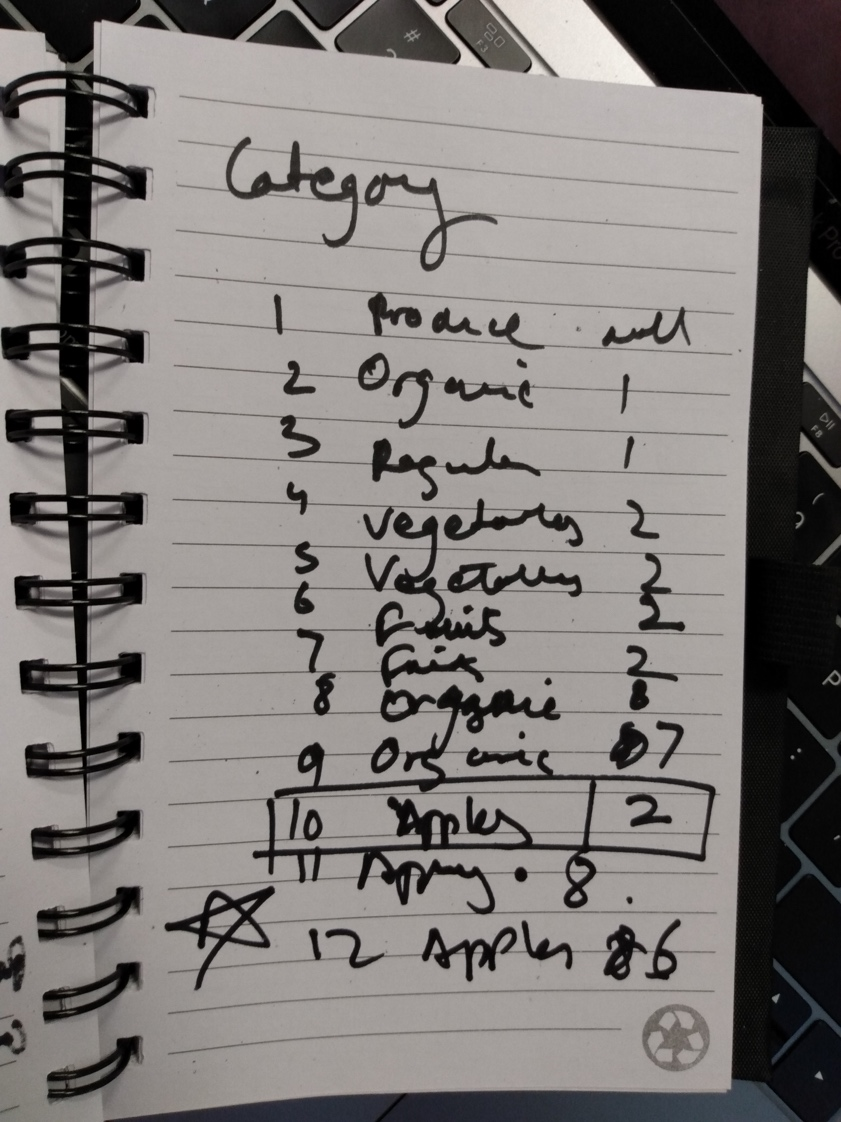 Category
1 Produce null
2 Organic 1
3 Regular 1
4 vegetables 2
5 Vegetables 2
6 Fruits 2
7 Fruits 2
8 Organic 8
9 Organic 7
10 Apples 2
11 8
12 Apples 6